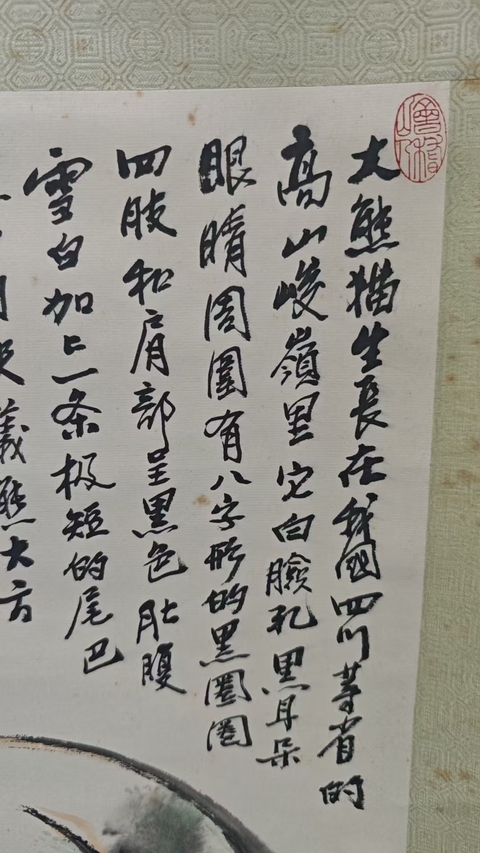 大熊猫生長在我國四川等省的
高山峻嶺里它白臉孔黑耳朵
眼睛周圍有八字形的黑圈圈
四肢和肩部呈黑色肚腹
雪白加上一条极短的尾巴
大方